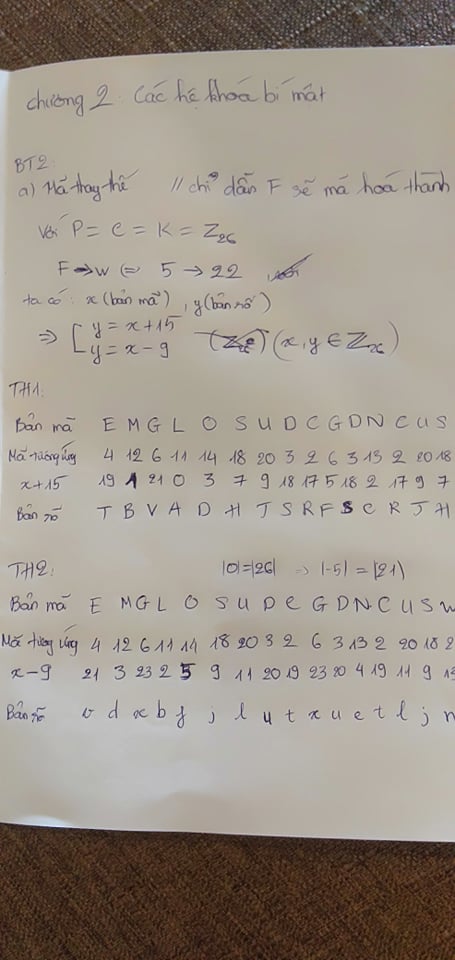 chương 2: Các hệ khoá bí mật
BT2:
a) Mã thay thế // chỉ dẫn F sẽ mã hoá thành
Với P = C = K = Z26
F → W (=) 5 → 22
ta có: x (bản mã), y (bản rõ)
⇒ [ y = x + 15
y = x - 9 (x, y ∈ Z26)
TH1:
Bản mã E M G L O S U D C G D N C U S
Mã tương ứng 4 12 6 11 14 18 20 3 2 6 3 13 2 20 18
x+15 19 1 21 0 3 7 9 18 17 5 18 2 17 9 7
Bản rõ T B V A D H J S R F S C R J H
TH2: |0|=|26| ⇒ |-5| = |21|
Bản mã E M G L O S U D C G D N C U S W
Mã tương ứng 4 12 6 11 14 18 20 3 2 6 3 13 2 20 18 2
x-9 21 3 23 2 5 9 11 20 19 23 20 4 19 11 9 13
Bản rõ v d x b f j l u t x u e t l j n